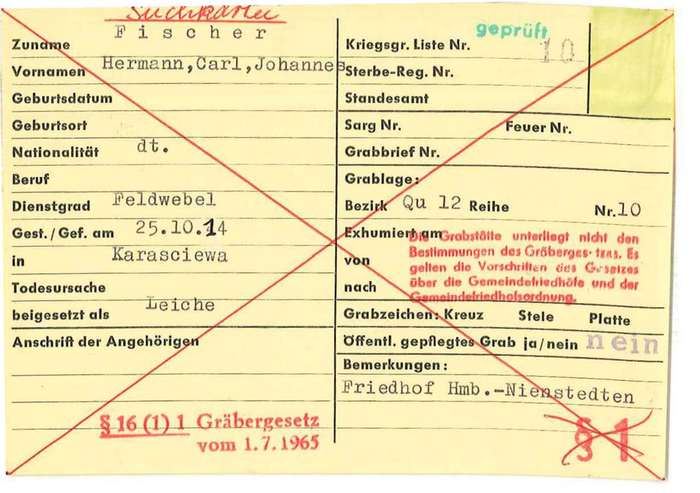 Suchkartei
Zuname Fischer
Vornamen Hermann,Carl,Johannes
Geburtsdatum
Geburtsort
Nationalität dt.
Beruf
Dienstgrad Feldwebel
Gest./Gef. am 25.10.14
in Karasciewa
Todesursache
beigesetzt als Leiche
Anschrift der Angehörigen
§ 16 (1) 1 Gräbergesetz
vom 1.7.1965
geprüft
Kriegsgr. Liste Nr. 10
Sterbe-Reg. Nr.
Standesamt
Sarg Nr. Feuer Nr.
Grabbrief Nr.
Grablage:
Bezirk Qu 12 Reihe Nr. 10
Exhumiert am
von
nach
Die Grabstätte unterliegt nicht den
Bestimmungen des Gräberges-tzes. Es
gelten die Vorschriften des Gesetzes
über die Gemeindefriedhöfe und der
Gemeindefriedhofsordnung.
Grabzeichen: Kreuz Stele Platte
Öffentl. gepflegtes Grab ja/nein nein
Bemerkungen:
Friedhof Hmb.-Nienstedten
§ 1